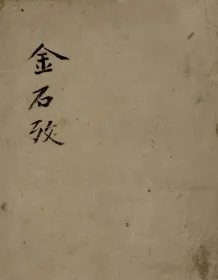 金石攷